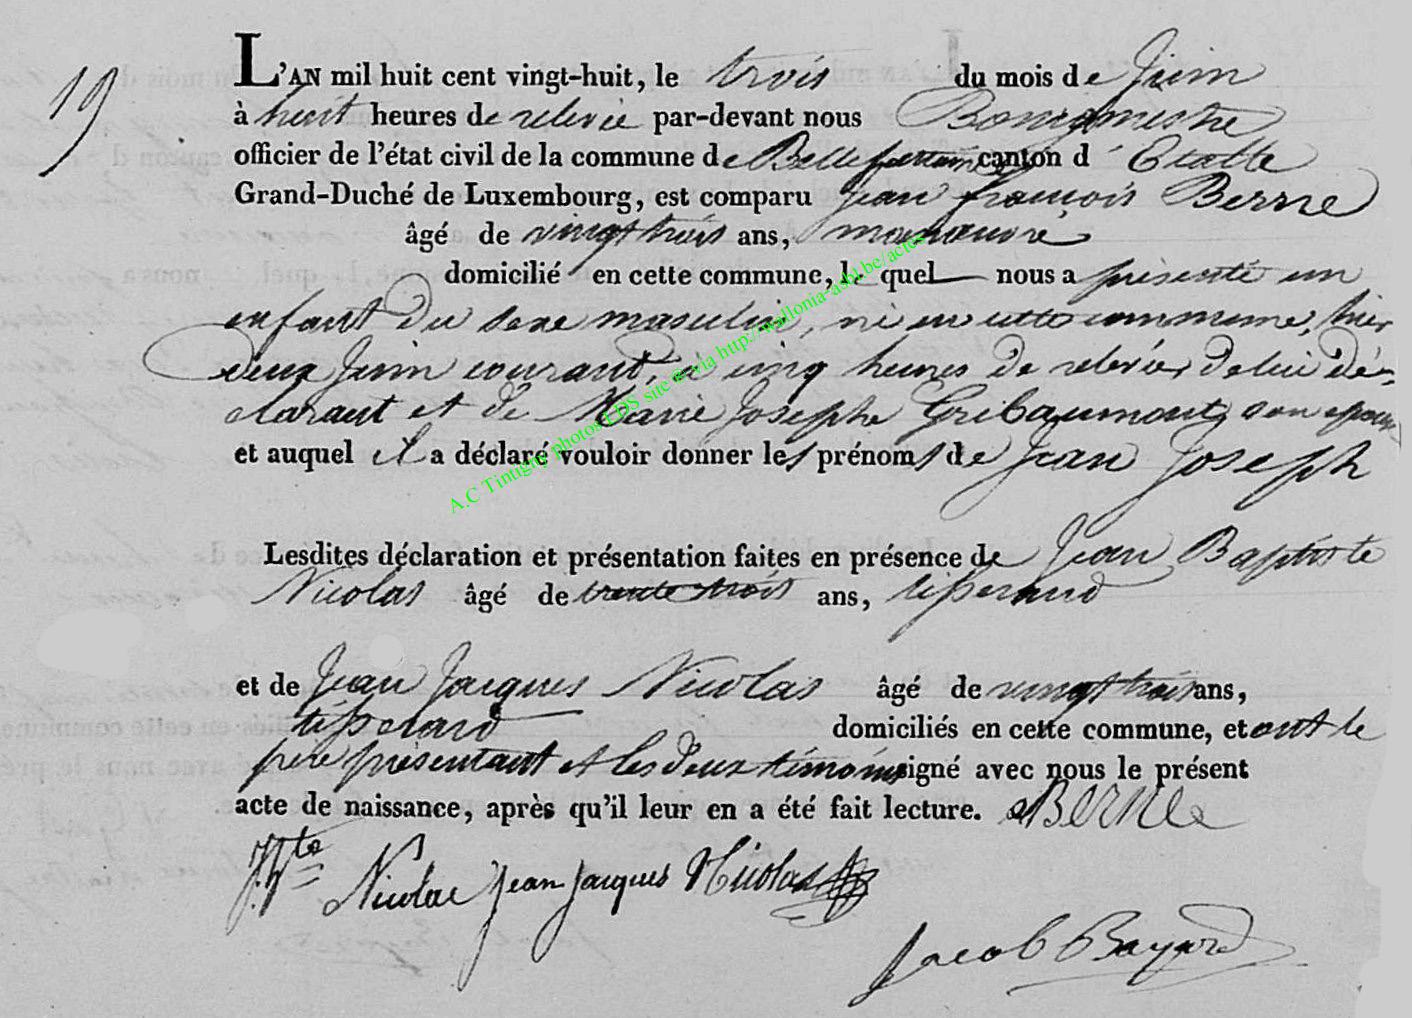 19
L'AN mil huit cent vingt-huit, le trois du mois de Juin
à huit heures de relevée par-devant nous Bourgmestre
officier de l'état civil de la commune de Bellefontaine canton d' Etalle
Grand-Duché de Luxembourg, est comparu Jean françois Berne
âgé de vingt trois ans, manœuvre
domicilié en cette commune, le quel nous a présenté un
enfant du sexe masculin, né en cette commune, hier
deux Juin courant, à cinq heures de relevée, de lui dé-
clarant et de Marie Josephe Gribaumont, son épouse
et auquel il a déclaré vouloir donner les prénoms de Jean Joseph
Lesdites déclaration et présentation faites en présence de Jean Baptiste
Nicolas âgé de trente trois ans, tisserand
et de Jean Jacques Nicolas âgé de vingt trois ans,
tisserand domiciliés en cette commune, et ont le
père présentant et les deux témoins signé avec nous le présent
acte de naissance, après qu'il leur en a été fait lecture. Berne
J. Bte Nicolas Jean Jacques Nicolas
Jacob Bayard
A.C Tintigny photos LDS site @ via http://wallonia-asbl.be/actes